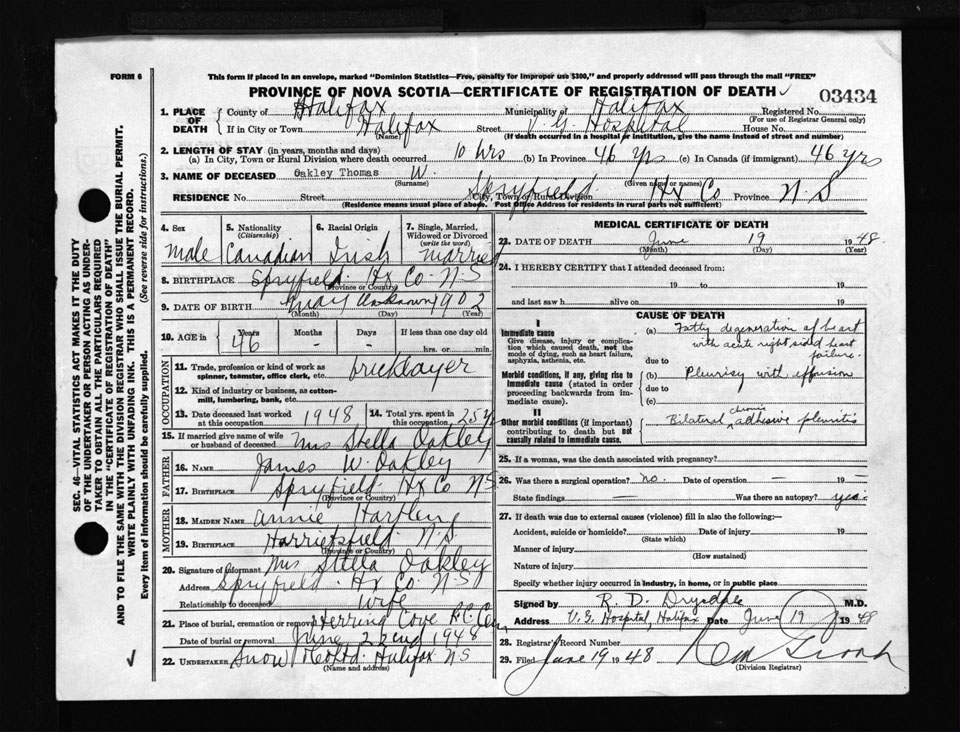 FORM 6
This form if placed in an envelope, marked "Dominion Statistics—Free, penalty for improper use $300," and properly addressed will pass through the mail "FREE"
PROVINCE OF NOVA SCOTIA—CERTIFICATE OF REGISTRATION OF DEATH
03434
1. PLACE OF DEATH
County of Halifax Municipality of Halifax Registered No.
(For use of Registrar General only)
If in City or Town Halifax Street V. G. Hospital House No.
(Name) (If death occurred in a hospital or institution, give the name instead of street and number)
2. LENGTH OF STAY (in years, months and days)
(a) In City, Town or Rural Division where death occurred 10 hrs (b) In Province 46 yrs (c) In Canada (if immigrant) 46 yrs
3. NAME OF DECEASED Oakley Thomas W.
(Surname) (Given name or names)
RESIDENCE No. Street Spryfield Hx Co Province N S
City, Town or Rural Division
(Residence means usual place of abode. Post Office Address for residents in rural parts not sufficient)
4. Sex 5. Nationality (Citizenship) 6. Racial Origin 7. Single, Married, Widowed or Divorced (write the word)
Male Canadian Irish married
8. BIRTHPLACE Spryfield Hx Co N-S
(Province or Country)
9. DATE OF BIRTH May Unknown 1902
(Month) (Day) (Year)
10. AGE in Years Months Days If less than one day old
46 - - hrs. or min.
OCCUPATION
11. Trade, profession or kind of work as spinner, teamster, office clerk, etc. bricklayer
12. Kind of industry or business, as cotton-mill, lumbering, bank, etc.
13. Date deceased last worked at this occupation 1948 14. Total yrs. spent in this occupation 25 y
15. If married give name of wife or husband of deceased Mrs Stella Oakley
FATHER
16. NAME James W. Oakley
17. BIRTHPLACE Spryfield Hx Co N S
(Province or Country)
MOTHER
18. MAIDEN NAME Annie Hartlen
19. BIRTHPLACE Harrietsfield N.S.
(Province or Country)
20. Signature of informant Mrs Stella Oakley
Address Spryfield Hx Co N-S
Relationship to deceased Wife
21. Place of burial, cremation or removal Herring Cove R.C. Cem
Date of burial or removal June 22nd 1948
22. UNDERTAKER Snow & Co Ltd. Halifax N S
(Name and address)
MEDICAL CERTIFICATE OF DEATH
23. DATE OF DEATH June 19 1948
(Month) (Day) (Year)
24. I HEREBY CERTIFY that I attended deceased from:
19 to 19
and last saw h alive on 19
CAUSE OF DEATH
I
Immediate cause
Give disease, injury or complication which caused death, not the mode of dying, such as heart failure, asphyxia, asthenia, etc.
(a) Fatty degeneration of heart
with acute right sided heart
failure.
due to
Morbid conditions, if any, giving rise to immediate cause (stated in order proceeding backwards from immediate cause).
(b) Pleurisy with effusion
due to
(c)
II
Other morbid conditions (if important) contributing to death but not causally related to immediate cause.
Bilateral chronic adhesive pleuritis
25. If a woman, was the death associated with pregnancy?
26. Was there a surgical operation? no. Date of operation — 19 —
State findings — Was there an autopsy? yes.
27. If death was due to external causes (violence) fill in also the following:—
Accident, suicide or homicide? Date of injury 19
(State which)
Manner of injury
(How sustained)
Nature of injury
Specify whether injury occurred in industry, in home, or in public place
Signed by R. D. Drysdale M.D.
Address V. G. Hospital, Halifax Date June 19 1948
28. Registrar's Record Number
29. Filed June 19 1948
(Division Registrar)
SEC. 46—VITAL STATISTICS ACT MAKES IT THE DUTY
OF THE UNDERTAKER OR PERSON ACTING AS UNDER-
TAKER TO OBTAIN ALL THE PARTICULARS REQUIRED
IN THE "CERTIFICATE OF REGISTRATION OF DEATH"
AND TO FILE THE SAME WITH THE DIVISION REGISTRAR WHO SHALL ISSUE THE BURIAL PERMIT.
WRITE PLAINLY WITH UNFADING INK. THIS IS A PERMANENT RECORD.
Every item of information should be carefully supplied. (See reverse side for instructions.)